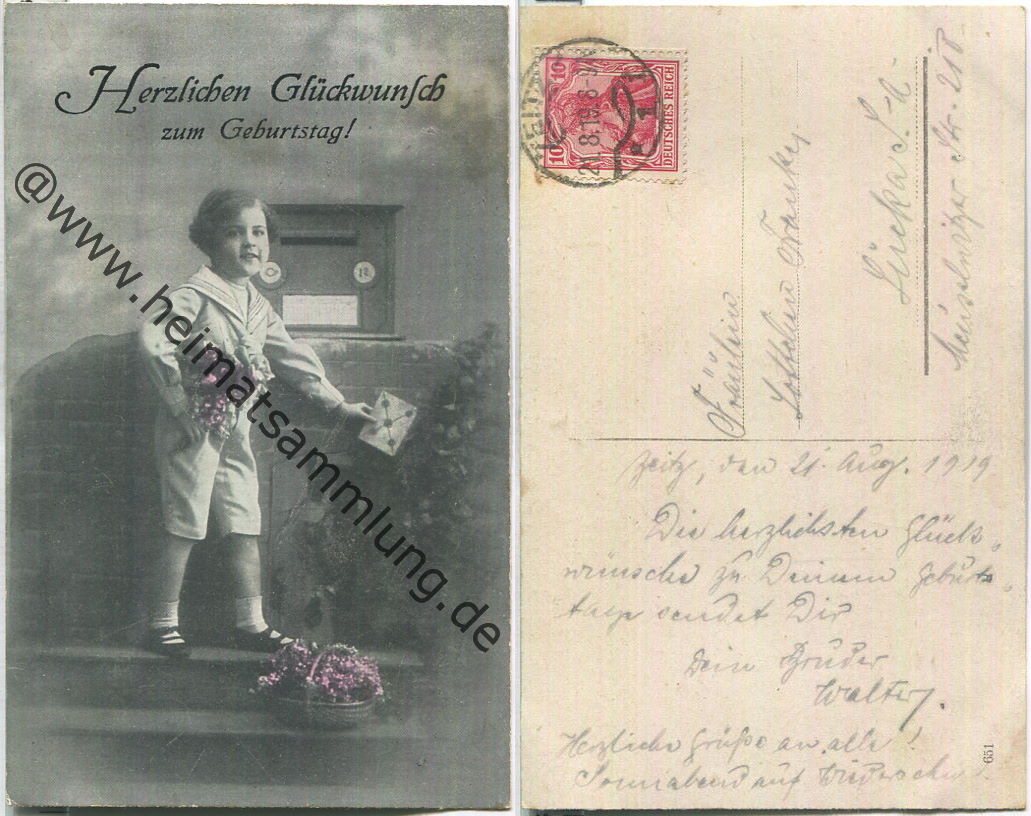 Herzlichen Glückwunsch
zum Geburtstag!
@www.heimatsammlung.de
10
10
DEUTSCHES REICH
21.8.19.8-9
Fräulein
Lottchen
Lucka S.-A.
Meuselwitzer Str. 20
Zeitz, den 21. Aug. 1919
Die herzlichsten Glück-
wünsche zu Deinem Geburts-
tage sendet Dir
Dein Bruder
Walter.
Herzliche Grüße an alle!
Sonnabend auf Wiedersehen
651